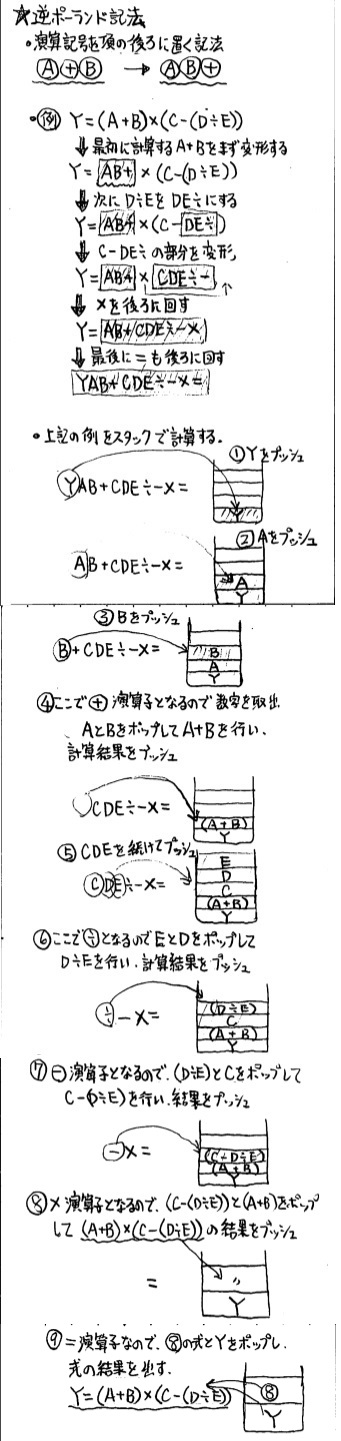 ☆逆ポーランド記法
・演算記号を項の後ろに置く記法
Ⓐ⊕Ⓑ → ⒶⒷ⊕
・例 Y=(A+B)×(C-(D÷E))
⇓ 最初に計算するA+Bをまず変形する
Y= AB+ ×(C-(D÷E))
⇓ 次にD÷EをDE÷にする
Y= AB+ ×(C-DE÷)
⇓ C-DE÷の部分を変形
Y= AB+ × CDE÷-
⇓ ×を後ろに回す
Y= AB+CDE÷-×
⇓ 最後に=も後ろに回す
YAB+CDE÷-×=
・上記の例をスタックで計算する.
①Yをプッシュ
YAB+CDE÷-×=
Y
②Aをプッシュ
AB+CDE÷-×=
A
Y
③Bをプッシュ
B+CDE÷-×=
B
A
Y
④ここで⊕演算子となるので数字を取出
AとBをポップしてA+Bを行い、
計算結果をプッシュ
CDE÷-×=
(A+B)
Y
⑤CDEを続けてプッシュ
CDE÷-×=
E
D
C
(A+B)
Y
⑥ここで÷となるのでEとDをポップして
D÷Eを行い、計算結果をプッシュ
÷-×=
(D÷E)
C
(A+B)
Y
⑦⊖演算子となるので、(D÷E)とCをポップして
C-(D÷E)を行い、結果をプッシュ
-×=
(C-D÷E)
(A+B)
Y
⑧×演算子となるので、(C-(D÷E))と(A+B)をポップ
して (A+B)×(C-(D÷E))の結果をプッシュ
=
〃
Y
⑨=演算子なので、⑧の式とYをポップし、
式の結果を出す.
Y=(A+B)×(C-(D÷E))
⑧
Y